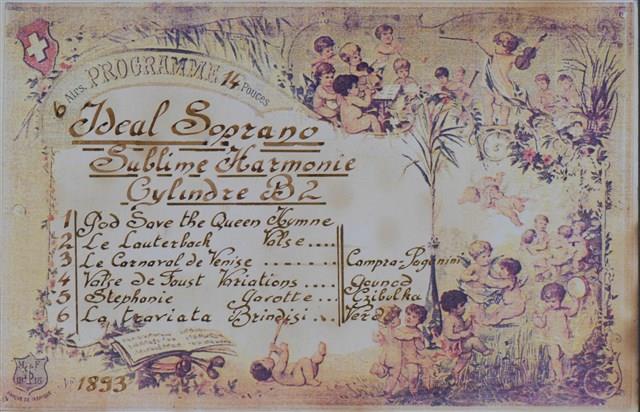 6 Airs. PROGRAMME 14 Pouces
Ideal Soprano
Sublime Harmonie
Cylindre B2
1 God Save the Queen Hymne
2 Le Lauterbach Valse....
3 Le Carnaval de Venise ........ Campra-Paganini
4 Valse de Foust Variations .... Gounod
5 Stephanie Gavotte... Czibulka
6 La traviata Brindisi... Verdi
No 1893